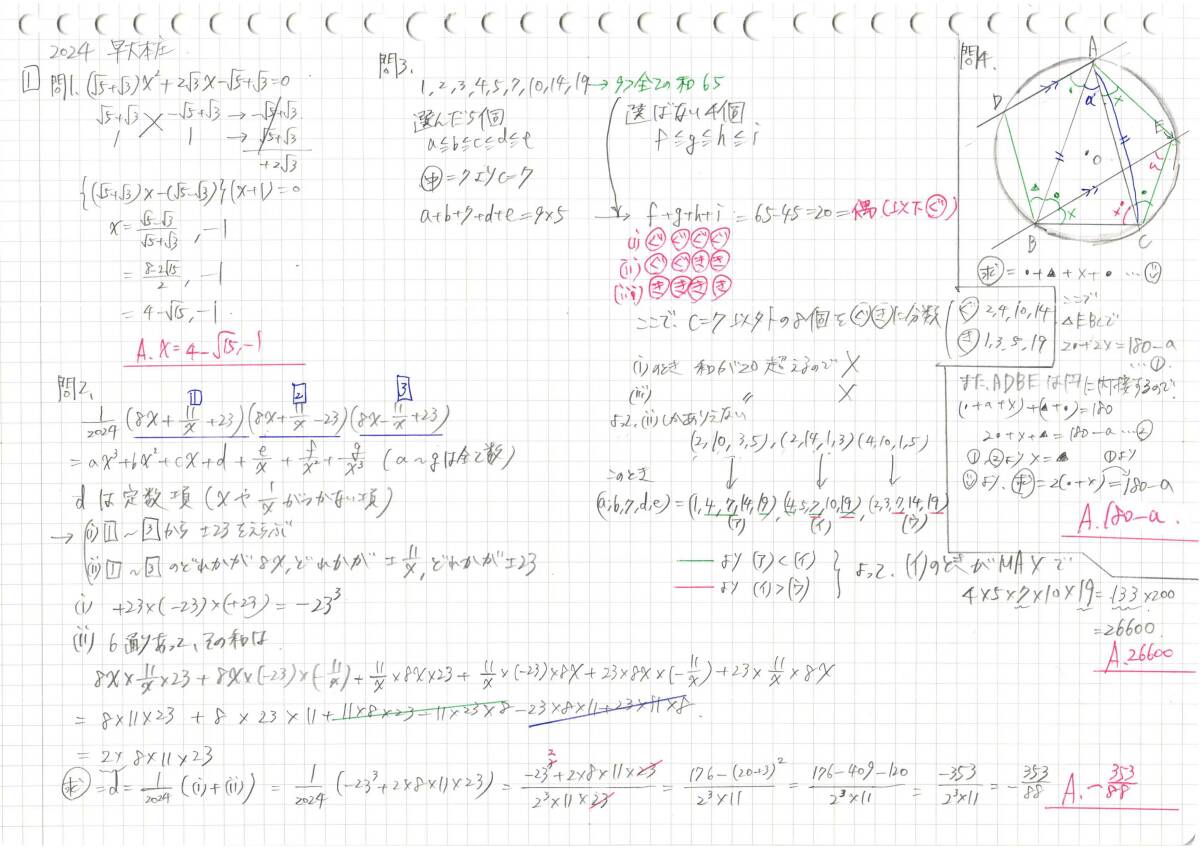 2024 早大本庄
1 問1. (√5+√3)x²+2√3x-√5+√3=0
√5+√3 -√5+√3 → -√5+√3
1 1 → √5+√3
+2√3
{(√5+√3)x-(√5-√3)}(x+1)=0
x=(√5-√3)/(√5+√3), -1
=(8-2√15)/2, -1
=4-√15, -1
A. x=4-√15, -1
問2.
1 2 3
1/2024 (8x+11/x+23)(8x+11/x-23)(8x-11/x+23)
=ax³+bx²+cx+d+e/x+f/x²+g/x³ (a~gは全て数)
dは定数項(xや1/xがつかない項)
→(i) 1~3から±23をえらぶ
(ii) 1~3のどれかが8x, どれかが±11/x, どれかが±23
(i) +23×(-23)×(+23)=-23³
(ii) 6通りあって、その和は
8x×11/x×23+8x×(-23)×(-11/x)+11/x×8x×23+11/x×(-23)×8x+23×8x×(-11/x)+23×11/x×8x
=8×11×23+8×23×11+11×8×23-11×23×8-23×8×11+23×11×8
=2×8×11×23
求=d=1/2024((i)+(ii))=1/2024(-23³+2×8×11×23)=(-23³+2×8×11×23)/(2³×11×23) 2 =(176-(20+3)²)/(2³×11)=(176-409-120)/(2³×11)=-353/(2³×11)=-353/88 A. -353/88
問3.
1,2,3,4,5,7,10,14,19→9つ全ての和65
選んだ5個 選ばない4個
a≦b≦c≦d≦e f≦g≦h≦i
中=7よりc=7
a+b+7+d+e=9×5 → f+g+h+i=65-45=20=偶(以下ぐ)
(i) ぐぐぐぐ
(ii) ぐぐきき
(iii) きききき
ここで、c=7以外の8個をぐきに分類 ぐ 2,4,10,14
き 1,3,5,19
(i)のとき 和が20超えるので×
(iii) 〃 ×
よって、(ii)しかありえない
(2,10,3,5),(2,14,1,3)(4,10,1,5)
このとき
(a,b,7,d,e)=(1,4,7,14,19),(4,5,7,10,19),(2,3,7,14,19)
(ア) (イ) (ウ)
より (ア)<(イ)
より (イ)>(ウ)
よって、(イ)のときがMAXで
4×5×7×10×19=133×200
=26600
A. 26600
問4.
A
D
E
a
x
O
B
C
求=•+▲+x+•…
ここで
△EBCで
2•+2x=180-a
…①
また、ADBEは円に内接するので
(•+a+x)+(▲+•)=180
2•+x+▲=180-a…②
①,②より x=▲ ①より
より、求=2(•+x)=180-a
A. 180-a.